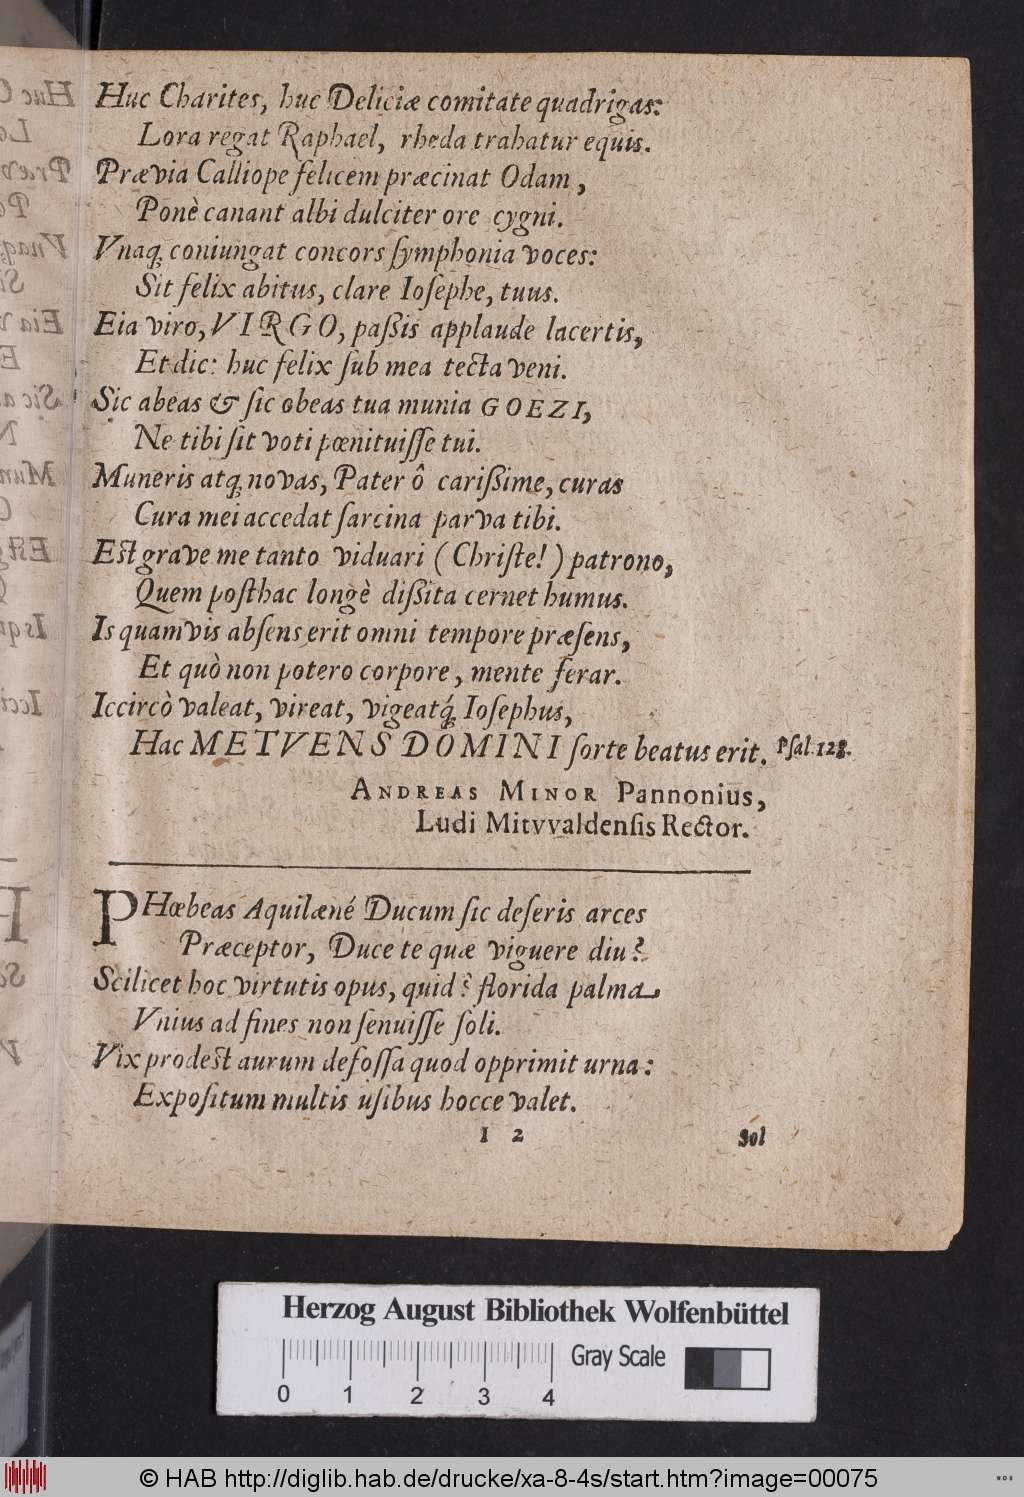 Huc Charites, huc Deliciæ comitate quadrigas:
Lora regat Raphael, rheda trahatur equis.
Prævia Calliope felicem præcinat Odam,
Ponè canant albi dulciter ore cygni.
Vnaq́; coniungat concors ſymphonia voces:
Sit felix abitus, clare Ioſephe, tuus.
Eia viro, VIRGO, paßis applaude lacertis,
Et dic: huc felix ſub mea tecta veni.
Sic abeas & ſic obeas tua munia GOEZI,
Ne tibi ſit voti pœnituiſſe tui.
Muneris atq́; novas, Pater ô carißime, curas
Cura mei accedat ſarcina parva tibi.
Eſt grave me tanto viduari (Chriſte!) patrono,
Quem poſthac longè dißita cernet humus.
Is quamvis abſens erit omni tempore præſens,
Et quò non potero corpore, mente ferar.
Iccircò valeat, vireat, vigeatq́; Ioſephus,
Hac METVENS DOMINI ſorte beatus erit. Pſal. 128.
ANDREAS MINOR Pannonius,
Ludi Mitvvaldenſis Rector.
PHœbeas Aquilæné Ducum ſic deſeris arces
Præceptor, Duce te quæ viguere diu?
Scilicet hoc virtutis opus, quid? florida palma
Vnius ad fines non ſenuiſſe ſoli.
Vix prodeſt aurum defoſſa quod opprimit urna:
Expoſitum multis uſibus hocce valet.
I 2
Sol
Herzog August Bibliothek Wolfenbüttel
Gray Scale
0 1 2 3 4
© HAB http://diglib.hab.de/drucke/xa-8-4s/start.htm?image=00075